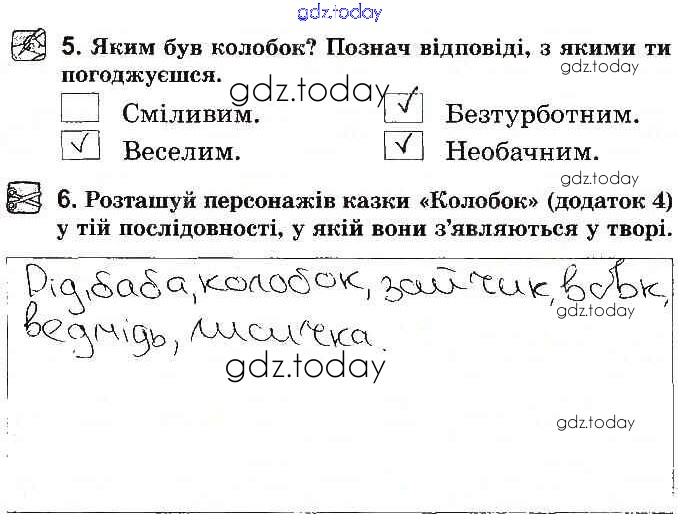 gdz.today
5. Яким був колобок? Познач відповіді, з якими ти
погоджуєшся.
gdz.today
gdz.today
Сміливим.
Безтурботним.
Веселим.
Необачним.
gdz.today
6. Розташуй персонажів казки «Колобок» (додаток 4)
у тій послідовності, у якій вони з’являються у творі.
Дід, баба, колобок, зайчик, вовк,
gdz.today
ведмідь, лисичка.
gdz.today
gdz.today